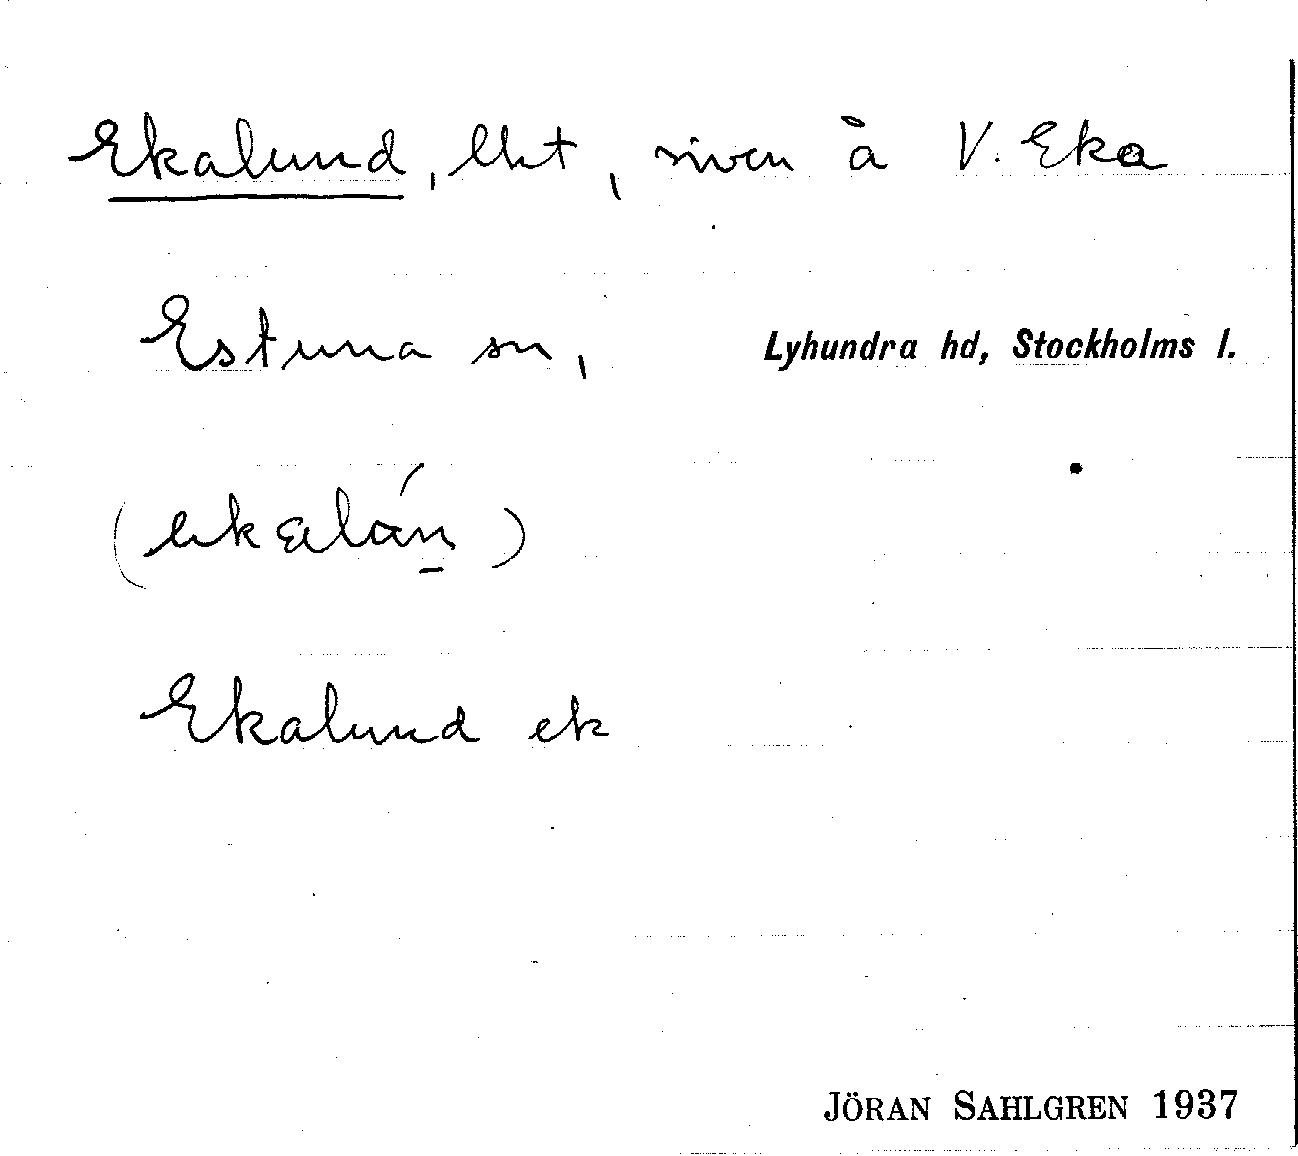 Ekalund, lht, riven å V. Eka
Estuna sn, Lyhundra hd, Stockholms l.
Ekalund ek
JÖRAN SAHLGREN 1937